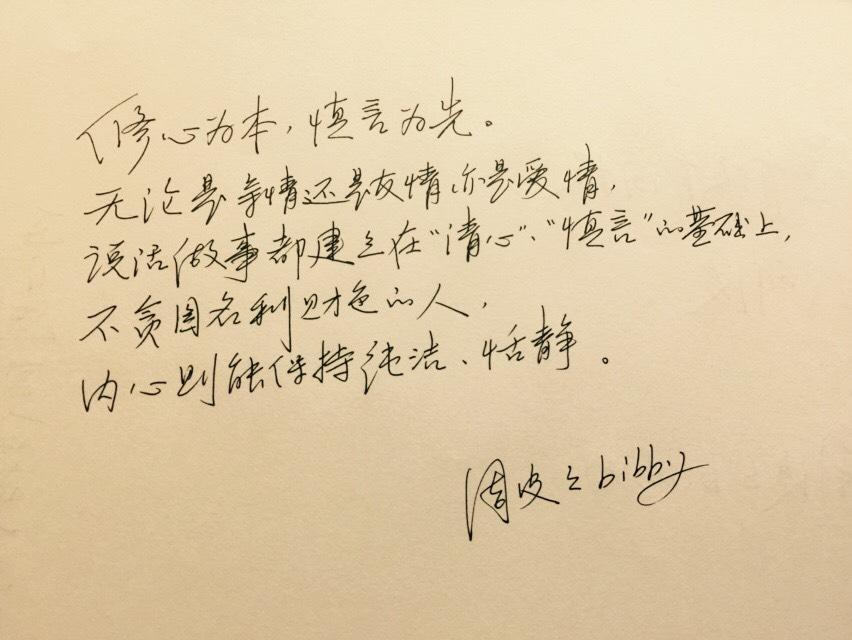 修心为本，慎言为先。
无论是亲情还是友情亦是爱情，
说话做事都建立在“清心”、“慎言”的基础上，
不贪图名利财色的人，
内心则能保持纯洁、恬静。
周皮之bibby